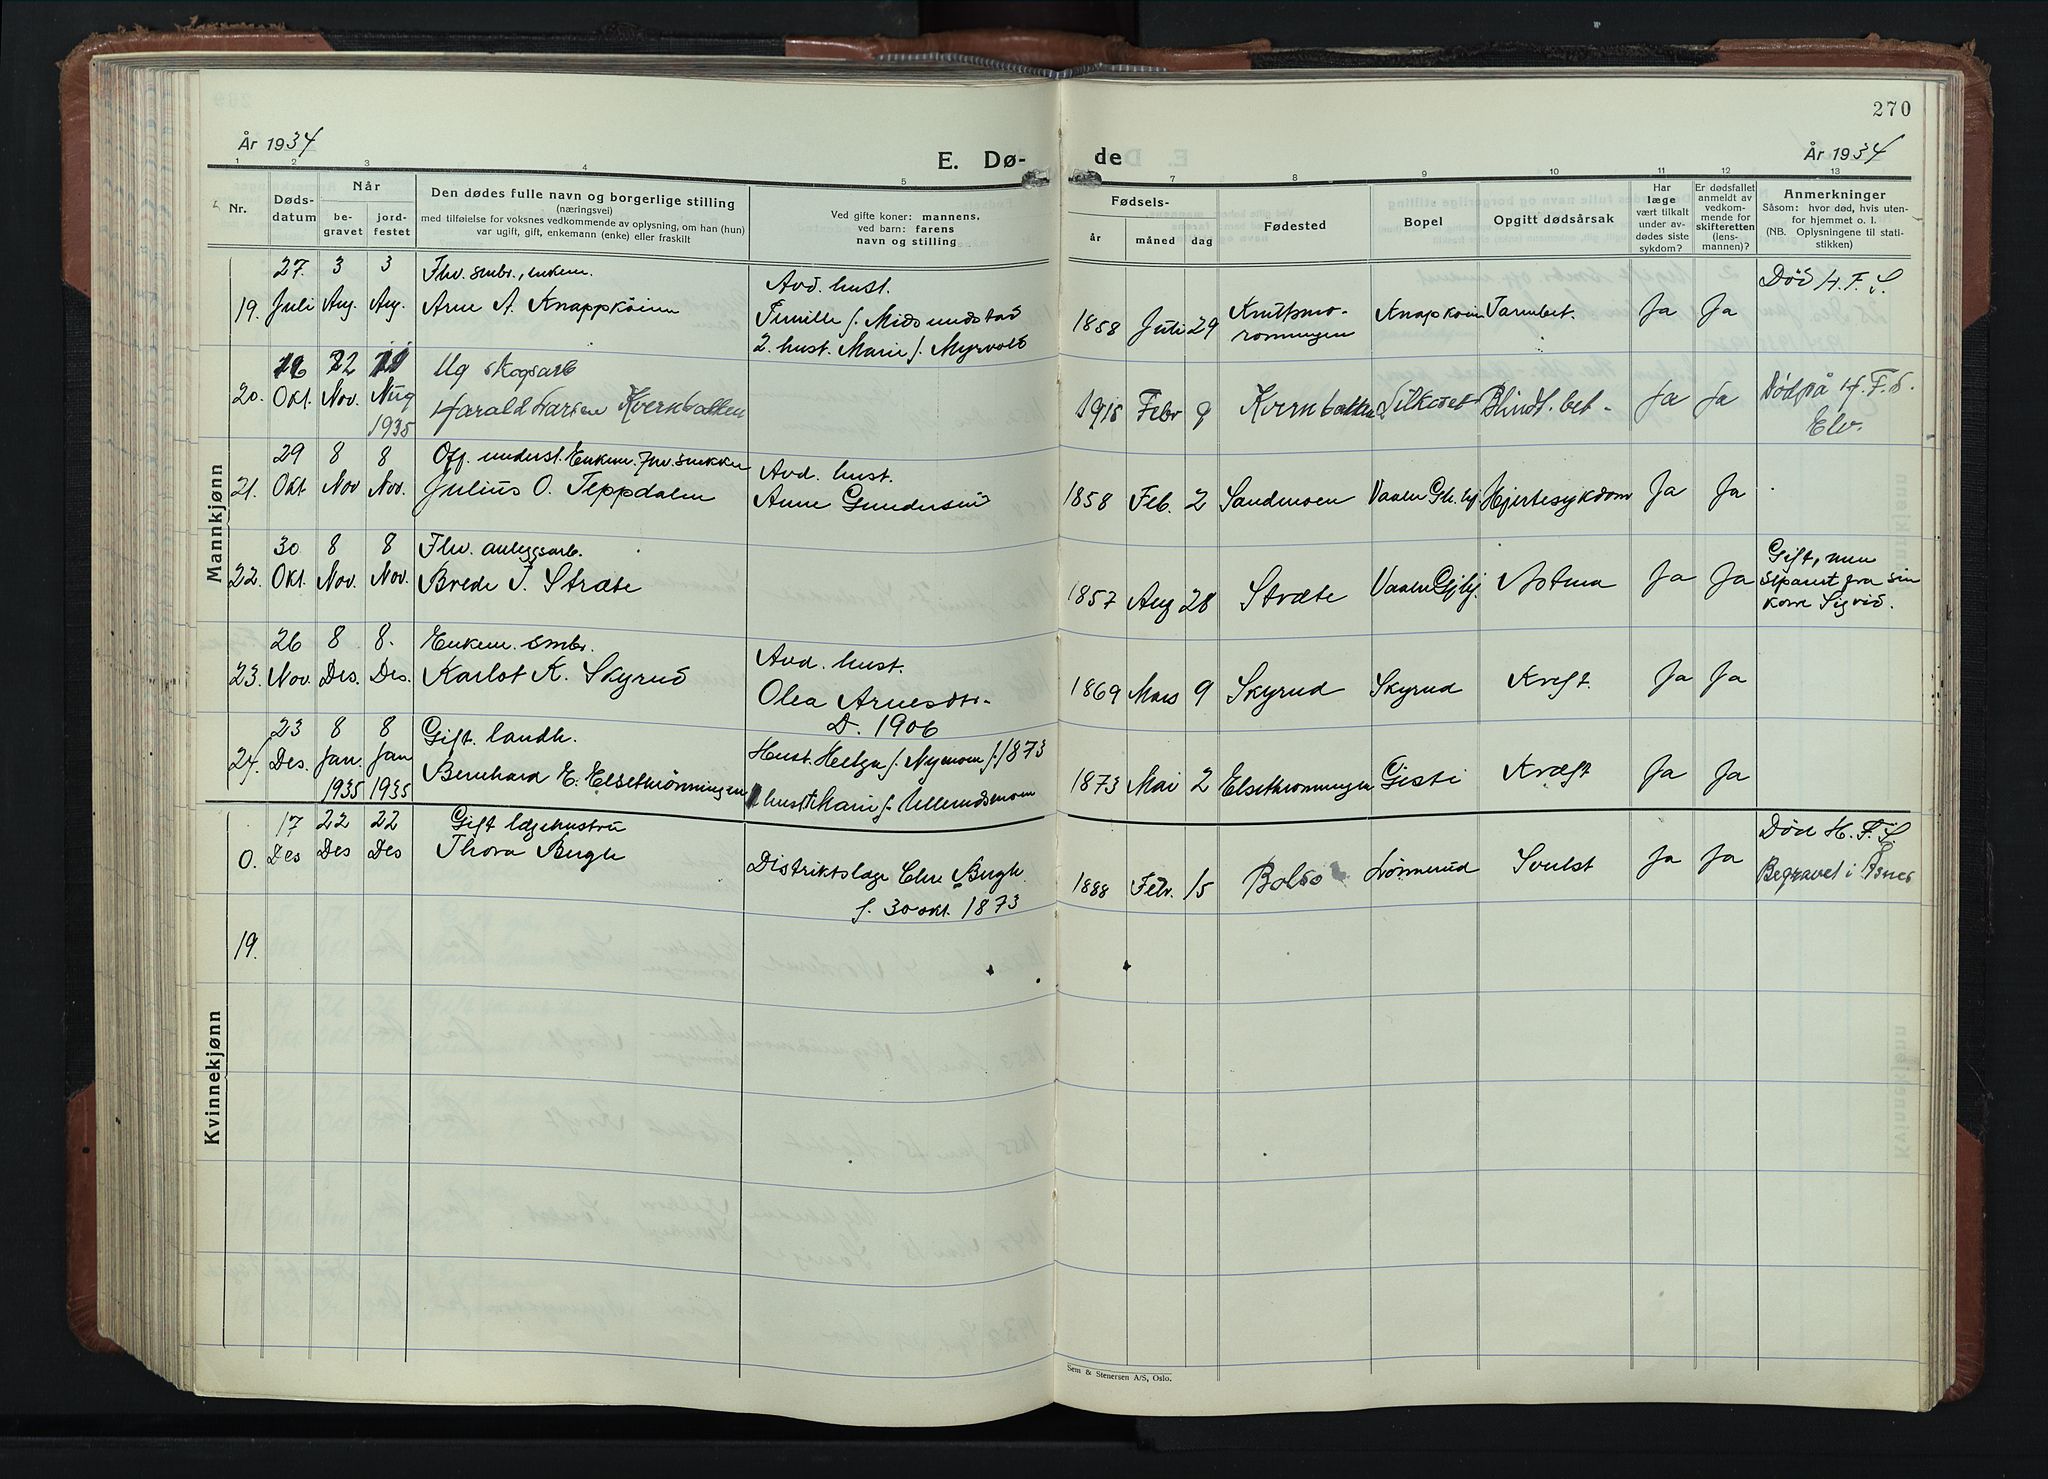 270
År 1934
E. Dø-
de
År 1934
1 2 3 4 5 7 8 9 10 11 12 13
Nr.
Døds-
datum
Når
be-
gravet
jord-
festet
Den dødes fulle navn og borgerlige stilling
(næringsvei)
med tilføielse for voksnes vedkommende av oplysning, om han (hun)
var ugift, gift, enkemann (enke) eller fraskilt
Ved gifte koner: mannens,
ved barn: farens
navn og stilling
Fødsels-
år
måned
dag
Fødested
Bopel
Opgitt dødsårsak
Har
læge
vært tilkalt
under av-
dødes siste
sykdom?
Er dødsfallet
anmeldt av
vedkom-
mende for
skifteretten
(lens-
mannen)?
Anmerkninger
Såsom: hvor død, hvis uten-
for hjemmet o. l.
(NB. Oplysningene til stati-
stikken)
Mannkjønn
27 3 3 Fhv. smbr., enkem.
19. Juli Aug. Aug. Arne A. Knappkøien
Avd. hust.
Pernille f. Midsundstad
2. hust. Marie f. Myrvolt
1858 Juli 29 Knutsmo-
ronningen
Knapkøin Tarmbet. Ja Ja
Død H. F. S.
16 22 Ug skogsarb
20. Okt. Nov. Aug
1935
Harald Larsen Kvernbakken
1915 Febr 9 Kvernbakken Silkoset Blindt. bet. Ja Ja
Død på H. F. S.
Elv.
29 8 8 Off. underst. Enkem. Fhv. snekker
21. Okt Nov Nov. Julius O. Teppdalen
Avd. hust.
Anne Gundersen
1858 Feb. 2 Sandmoen Vaaler Glhj. Hjertesykdom Ja Ja
30 8 8 Fhv. anleggsarb.
22. Okt. Nov. Nov. Brede J. Stræte
1857 Aug 28 Stræte Vaaler Glhj. Astma Ja Ja
Gift, men
separert fra sin
kone Sigrid.
26 8 8. Enkem. smbr.
23. Nov. Des. Des. Karlot K. Skyrud
Avd. hust.
Olea Arnesdtr.
D. 1906
1869 Mars 9 Skyrud Skyrud Kreft. Ja Ja
23 8 8 Gift. landh.
24. Des. Jan. Jan
1935 1935
Bernhard E. Elsetrønningen
Hust. Helga f. Nymoen f. 1873
hust Marie f. Ullerudsmoen
1873 Mai 2 Elsetrønningen Gisti Kræft Ja Ja
Kvinnekjønn
17 22 22 Gift lægehustru
0. Des Des Des Thora Bugge
Distriktslæge Chr. Bugge
f. 30 okt. 1873
1888 Febr. 15 Bolsø Lømmerud Svulst Ja Ja
Død H. F. S.
Begravet i Åsnes
19.
Sem & Stenersen A/S, Oslo.